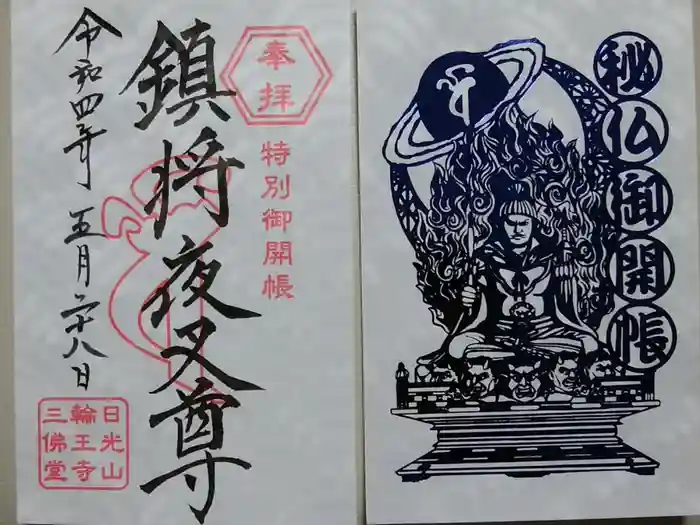 奉拝
特別御開帳
鎮将夜叉尊
令和四年五月二十八日
日光山
輪王寺
三佛堂
秘仏御開帳